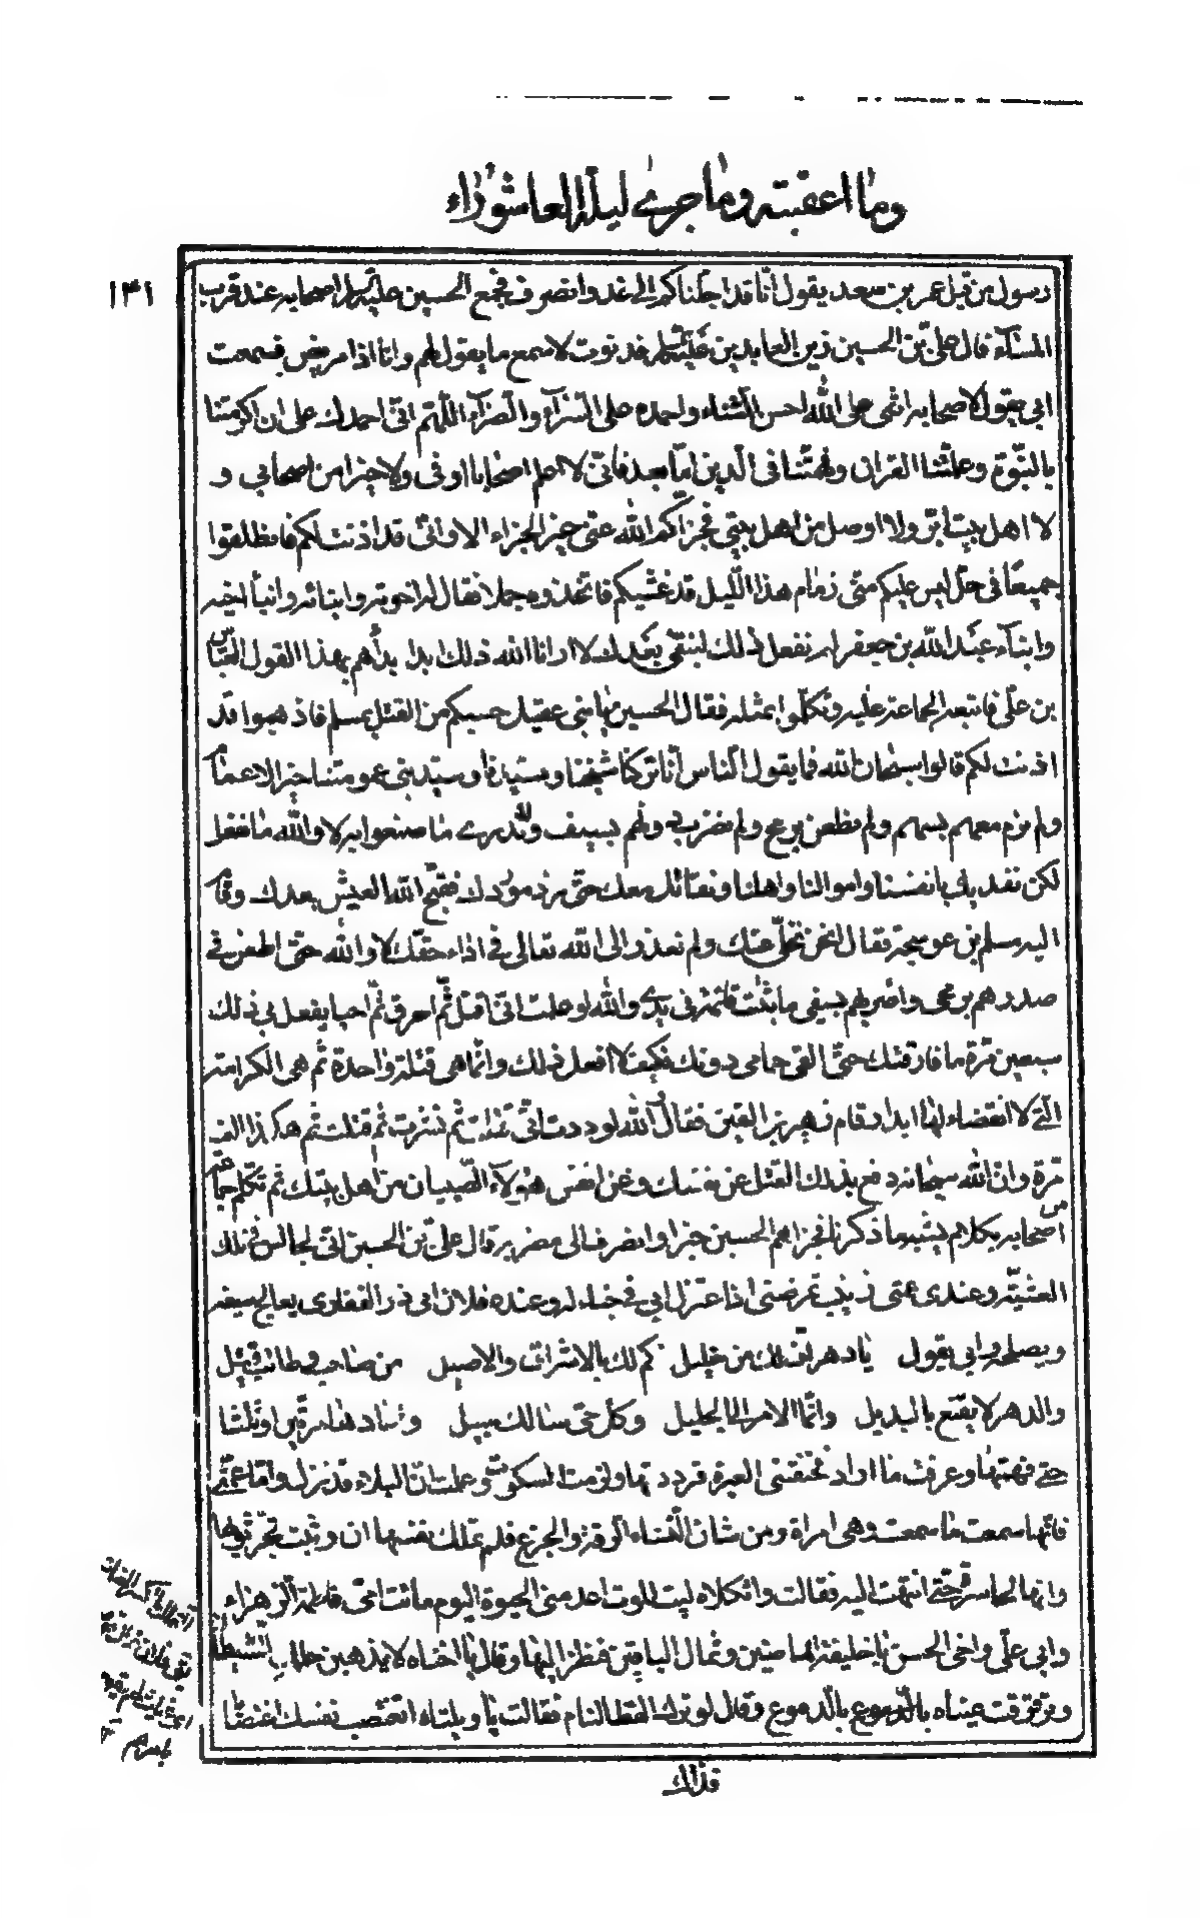 وما اعقبته وما جرى ليلة العاشوراء
١٣١
رسول من قبل عمر بن سعد يقول انّا قد اجّلناكم الى غد وانصرف فجمع الحسين عليه السلم اصحابه عند قرب
المساء قال علىّ بن الحسين زين العابدين عليه السلم فدنوت لاسمع ما يقول لهم وانا اذا مريض فسمعت
ابى يقول لاصحابه اثنى على الله احسن الثناء واحمده على السّرّاء والضرّاء اللّهمّ انى احمدك على ان اكرمتنا
بالنبّوة وعلّمتنا القران وفهّمتنا فى الدين امّا بعد فانّى لا اعلم اصحابا اوفى ولا خيرا من اصحابى و
لا اهل بيت ابرّ ولا اوصل من اهل بيتى فجزاكم الله عنّى خير الجزاء الا وانّى قد اذنت لكم فانطلقوا
جميعًا فى حلّ ليس عليكم منّى زمام هذا اللّيل قد غشيكم فاتخذوه جملا فقال له اخوته وابنائه وابناء اخيه
وابناء عبد الله بن جعفر لم نفعل ذلك لنبقى بعدك لا ارانا الله ذلك ابدا بدأهم بهذا القول العبّاس
بن علىّ فاتبعه الجماعة عليه وتكلّموا بمثله فقال الحسين يا بنى عقيل حسبكم من القتل بمسلم فاذهبوا قد
اذنت لكم قالوا سبحان الله فما يقول النّاس انّا تركنا شيخنا وسيّدنا وسيّد بنى عمومتنا خير الاعمام
ولم نرم معهم بسهم ولم نطعن برمح ولم نضرب معهم بسيف ولا ندرى ما صنعوا به لا والله ما نفعل
لكن نفديك بانفسنا واموالنا واهلنا ونقاتل معك حتّى نرد موردك فقبّح الله العيش بعدك وقام
اليه مسلم بن عوسجة فقال انحن نخلّى عنك ولم نعذر الى الله تعالى فى اداء حقّك لا والله حتى اطعن فى
صدورهم برمحى واضربهم بسيفى ما ثبت قائمه فى يدى والله لو علمت انّى اقتل ثمّ احرق ثمّ احيا يفعل بى ذلك
سبعين مرّة ما فارقتك حتّى القى حمامى دونك فكيف لا افعل ذلك وانّما هى قتلة واحدة ثم هى الكرامة
الّتى لا انقضاء لها ابدا وقام زهير بن القين فقال والله لوددت انّى قتلت ثم نشرت ثم قتلت ثم هكذا الف
مرّة وان الله سبحانه دفع بذلك القتل عن نفسك وعن انفس هؤلاء الصّبيان من اهل بيتك ثم تكلّم جماعة
من اصحابه بكلام يشبه ما ذكرنا فجزاهم الحسين خيرا وانصرف الى مضربه قال علىّ بن الحسين انّى لجالس فى تلك
العشيّة وعندى عمّتى زينب تمرّضنى اذا اعتزل ابى فى خباء له وعنده فلان ابى ذر الغفارى يعالج سيفه
ويصلحه وابى يقول يا دهر افّ لك من خليل كم لك بالاشراق والاصيل من صاحب وطالب قتيل
والدهر لا يقنع بالبديل وانّما الامر الى الجليل وكلّ حىّ سالك سبيل وأعاد هذا مرّتين او ثلثا
حتى فهمتها وعرفت ما اراد فخنقتنى العبرة فرددتها ولزمت السكوت وعلمت انّ البلاء قد نزل وامّا عمّتى
فانّها سمعت ما سمعت وهى امراة ومن شان النّساء الرقّة والجزع فلم تملك نفسها ان وثبت تجرّ ثوبها
وانها لحاسرة حتّى انتهت اليه فقالت واثكلاه ليت الموت اعدمنى الحيوة اليوم ماتت امّى فاطمة الزهراء
وابى علىّ واخى الحسن يا خليفة الماضين وثمال الباقين فنظر اليها وقال يا اختاه لا يذهبن حلمك الشيطان
وترقرقت عيناه بالدّموع وقال لو ترك القطا لنام فقالت يا ويلتاه اتغتصب نفسك اغتصابًا
فذلك